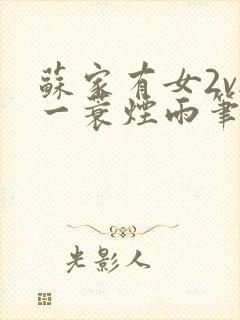 蘇家有女2v
一蓑煙雨筆
光影人